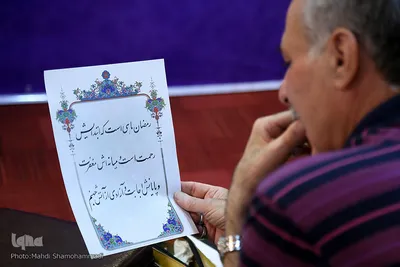 رمضان ماهی است که ابتدایش
رحمت است و میانه‌اش مغفرت
و پایانش اجابت و آزادی از آتش جهنم
iqna
Photo:Mahdi Shamohammadi